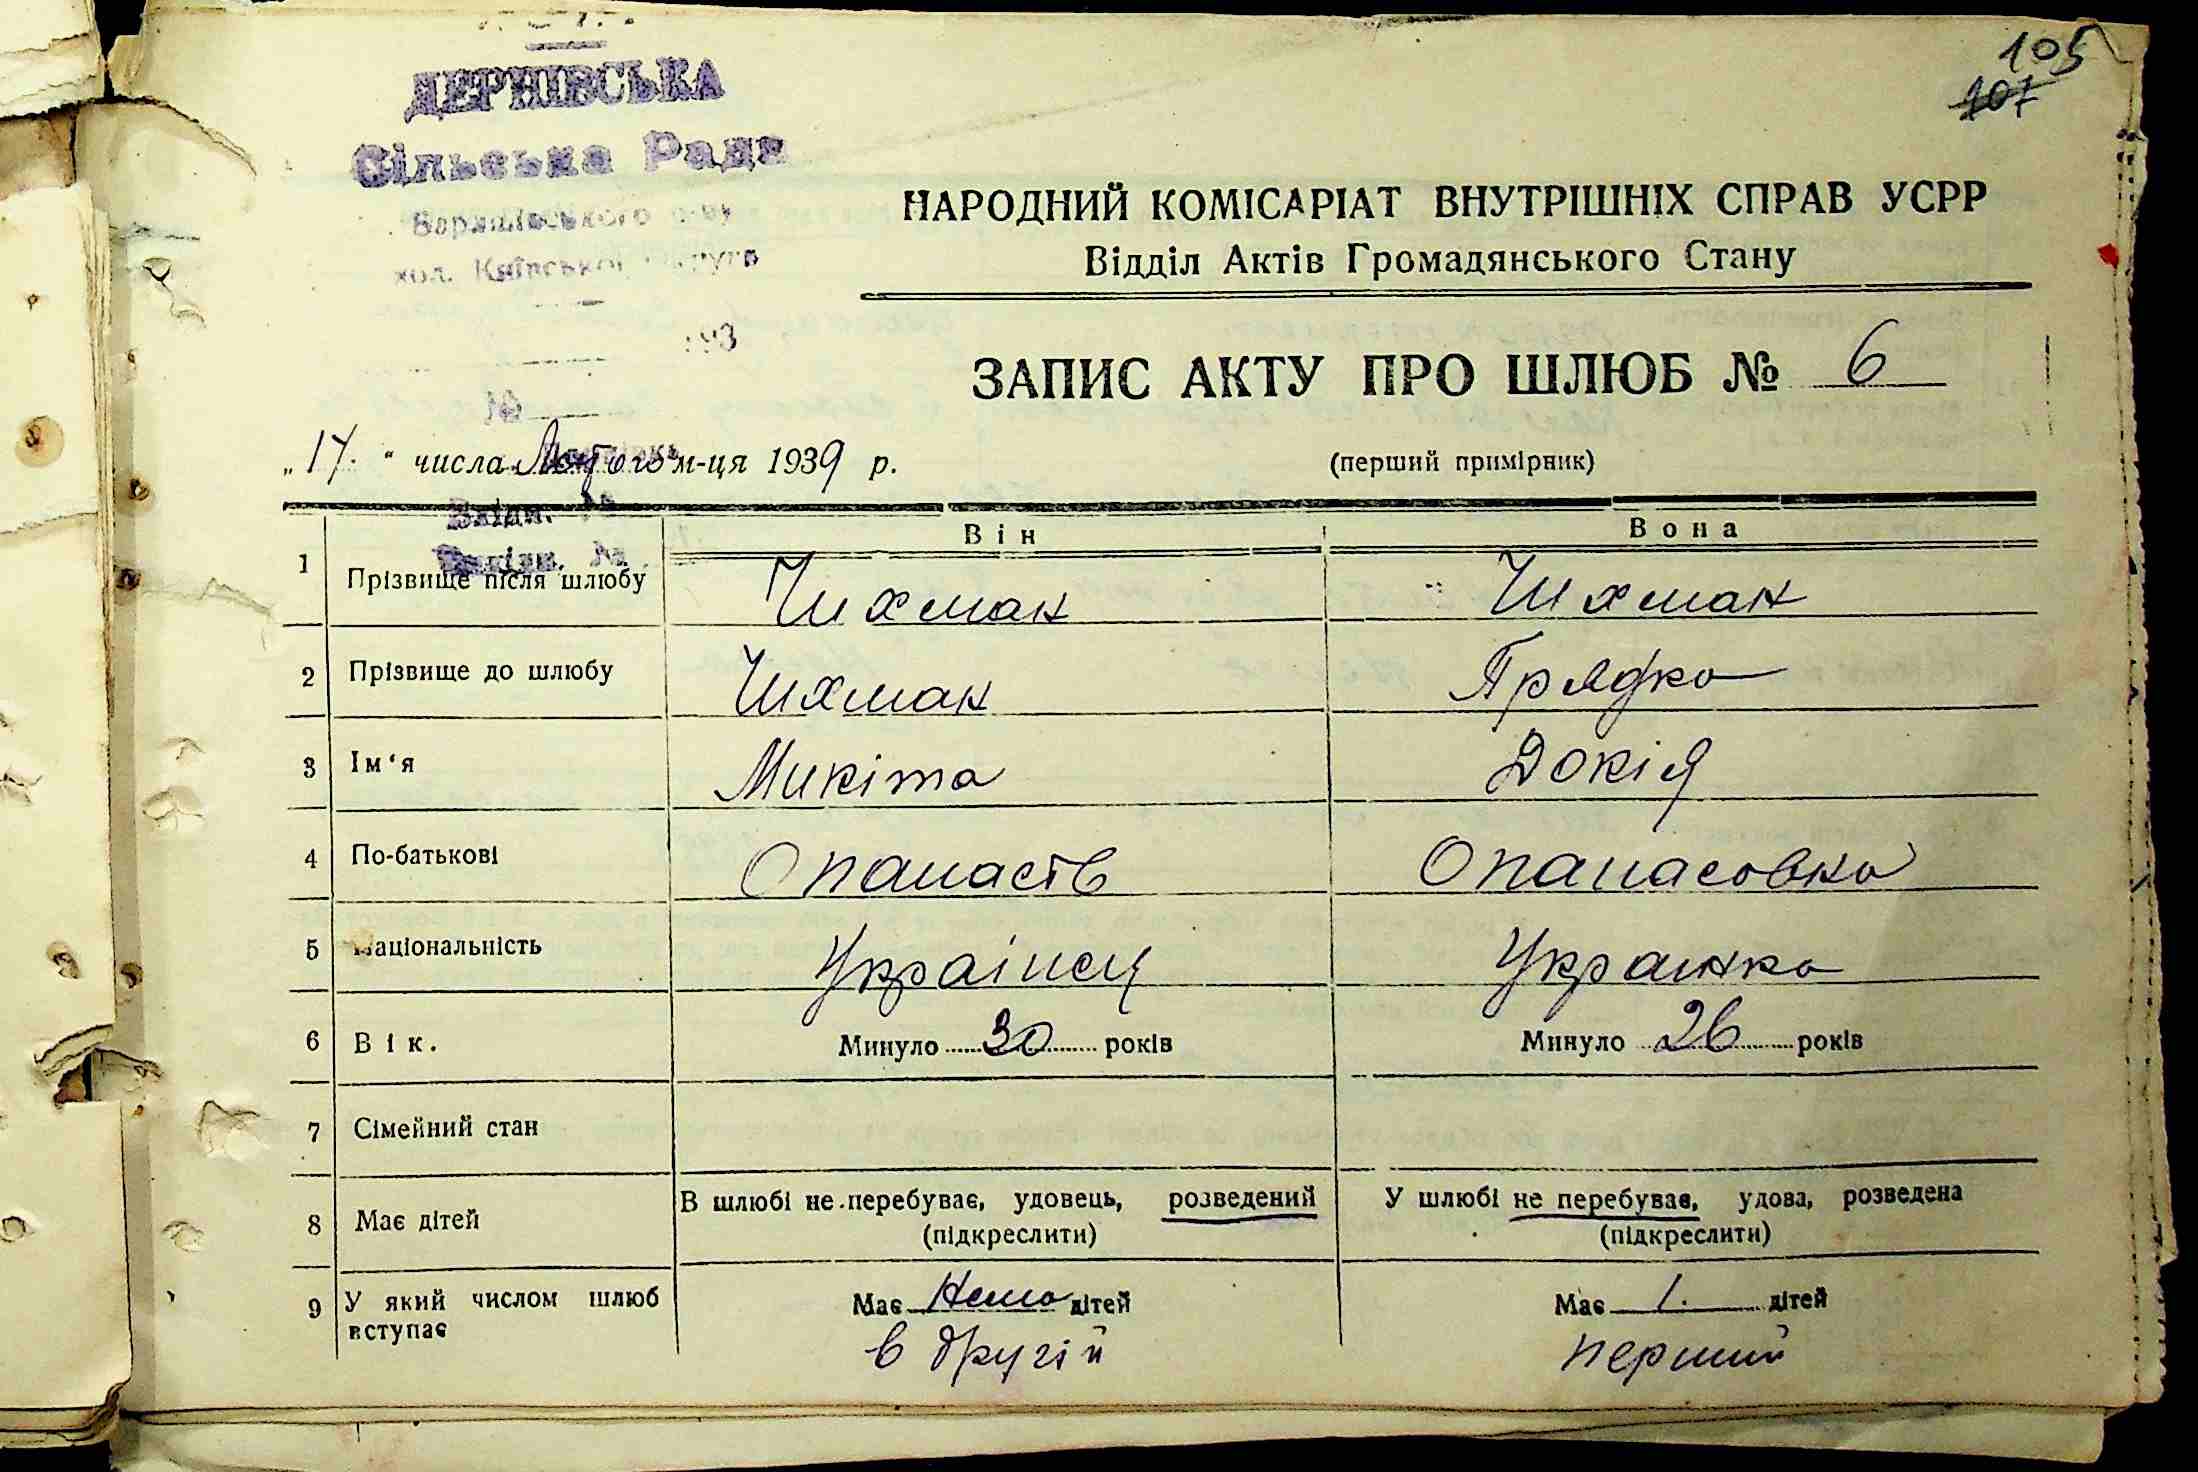 105
107
ДЕРНІВСЬКА
Сільська Рада
НАРОДНИЙ КОМІСАРІАТ ВНУТРІШНІХ СПРАВ УСРР
Відділ Актів Громадянського Стану
193
ЗАПИС АКТУ ПРО ШЛЮБ № 6
„17.“ числа Лютого м-ця 1939 р. (перший примірник)
Вхідн. №
Він Вона
1 Прізвище після шлюбу Шихман Шихман
2 Прізвище до шлюбу Шихман Прядко
3 Ім'я Микіта Докія
4 По-батькові Опанасів Опанасовна
5 Національність Украінец Украинка
6 Вік. Минуло 30 років Минуло 26 років
7 Сімейний стан
8 Має дітей В шлюбі не перебуває, удовець, розведений У шлюбі не перебуває, удова, розведена
(підкреслити) (підкреслити)
9 У який числом шлюб вступає Має Нема дітей Має 1. дітей
в другій перший